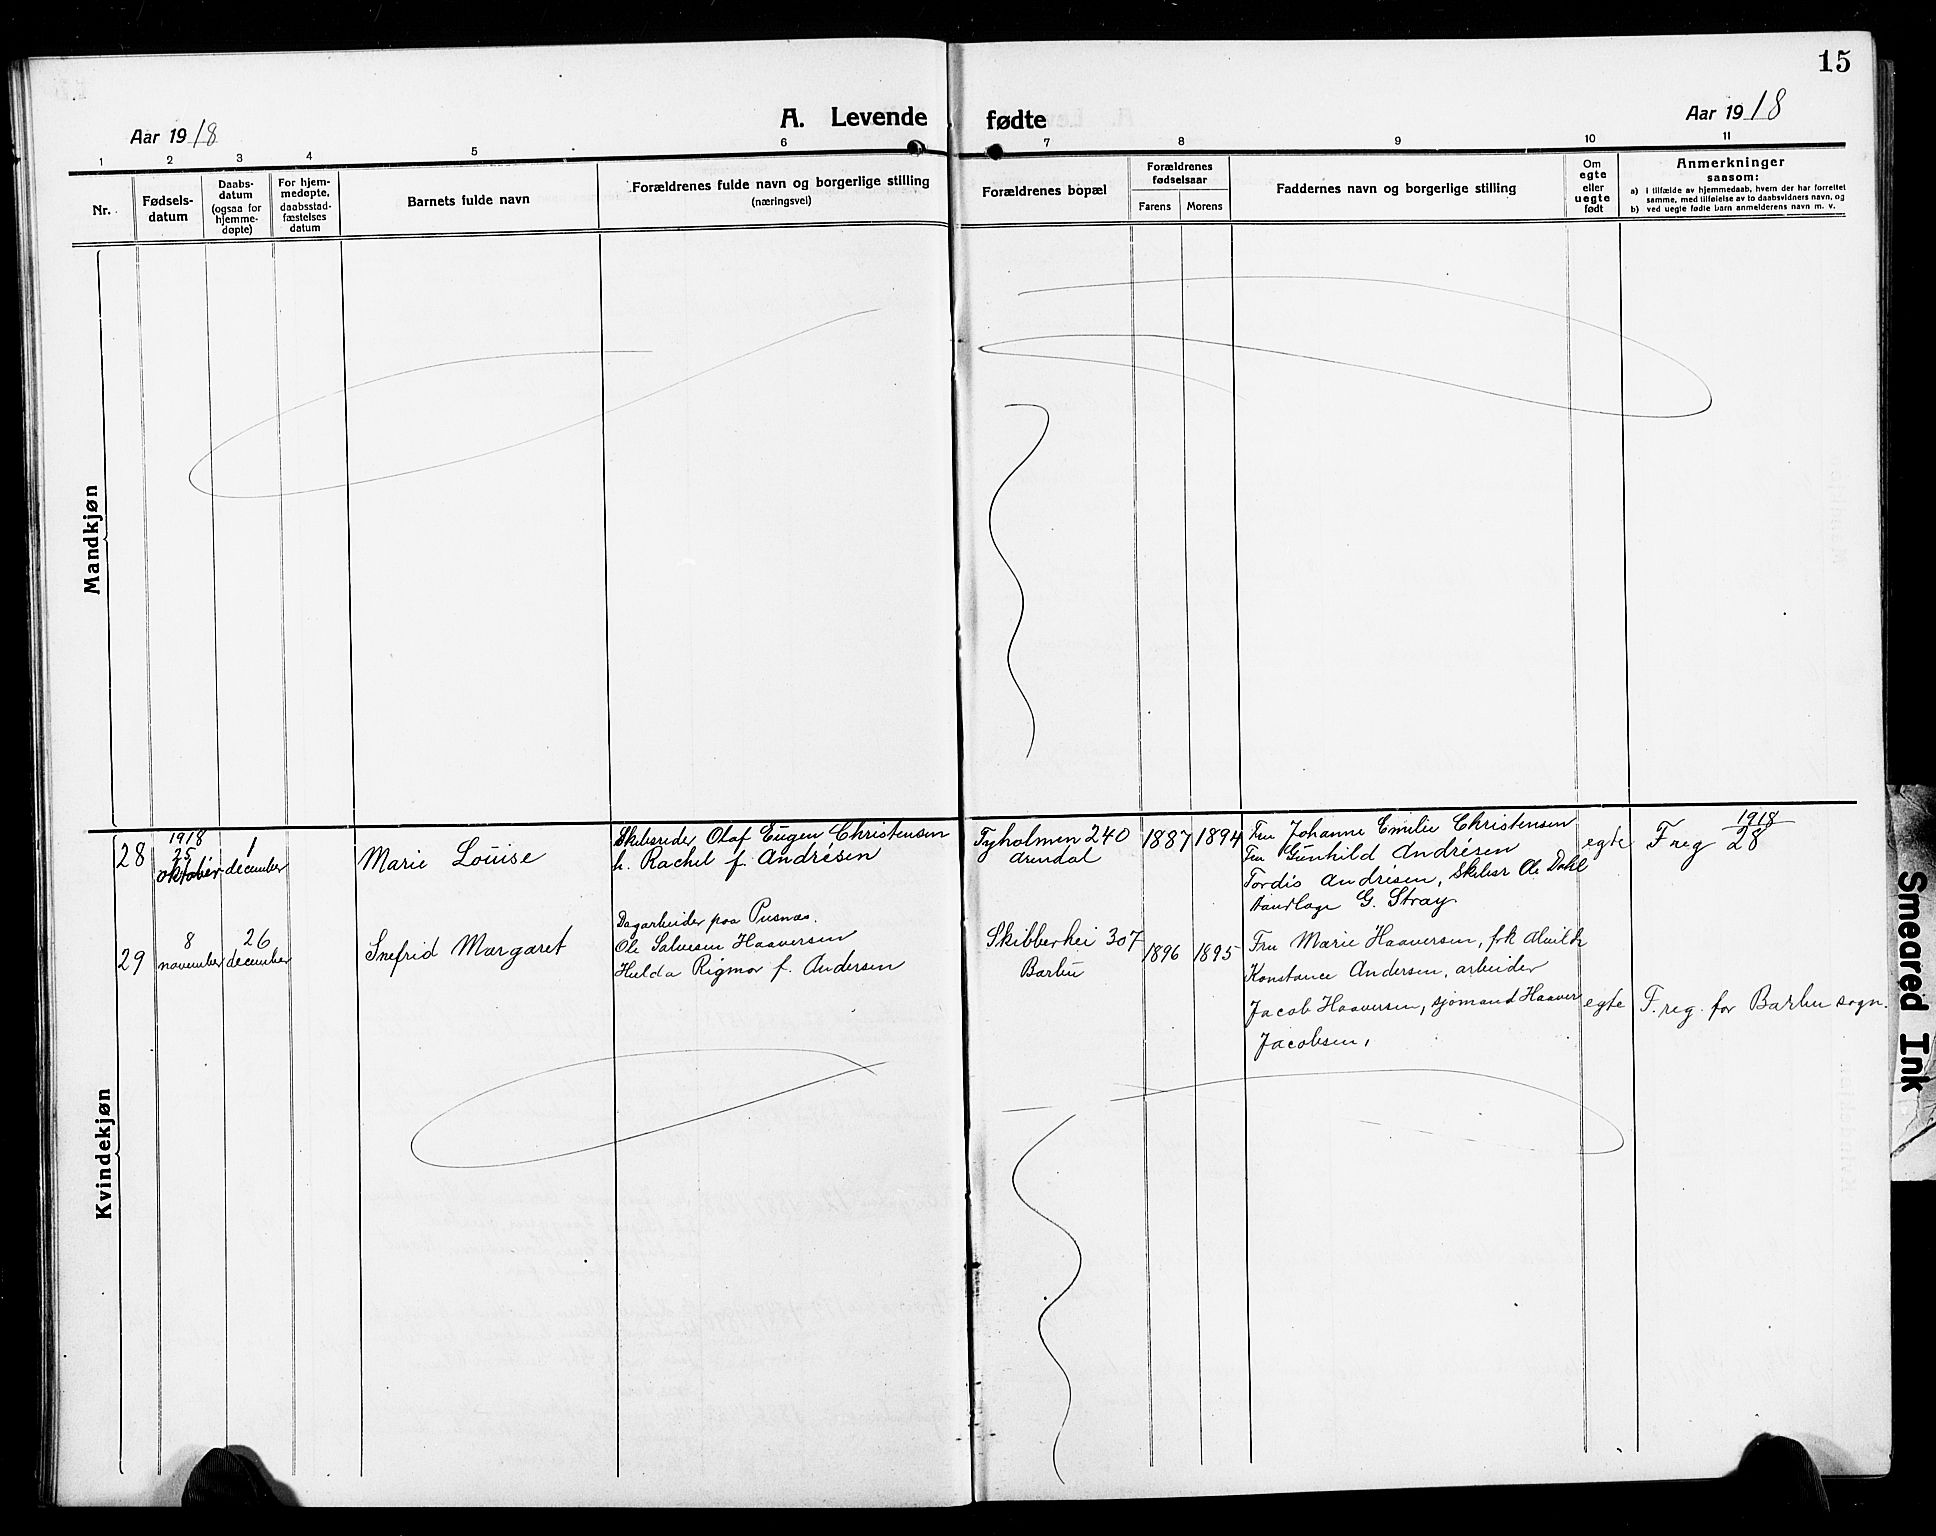 15
A. Levende fødte
Aar 1918
Aar 1918
1 2 3 4 5 6 7 8 9 10 11
Nr.
Fødsels-
datum
Daabs-
datum
(ogsaa for
hjemme-
døpte)
For hjem-
medøpte,
daabsstad-
fæstelses
datum
Barnets fulde navn
Forældrenes fulde navn og borgerlige stilling
(næringsvei)
Forældrenes bopæl
Forældrenes
fødselsaar
Farens Morens
Faddernes navn og borgerlige stilling
Om
egte
eller
uegte
født
Anmerkninger
saasom:
a) i tilfælde av hjemmedaab, hvem der har forrettet
samme, med tilføielse av to daabsvidners navn, og
b) ved uegte fødte barn anmelderens navn m. v.
Mandkjøn
Kvindekjøn
28
1918
25
oktober
1
december
Marie Louise
Skibsreder Olaf Eugen Christensen
h. Rachel f. Andrésen
Tyholmen 240
Arendal
1887 1894
Fru Johanne Emilie Christensen
Fru Gunhild Andrésen
Tordis Andresen, Skibsr Ole Dahl
G. Stray
egte
F reg 1918/28
29
8
november
26
december
Snefrid Margaret
Dagarbeider paa Pusnæs.
Ole Salvesen Haaversen
Hulda Rigmor f. Andersen
Skibberhei 307
Barbu
1896 1895
Fru Marie Haaversen, frk Alvilde
Konstance Andersen, arbeider
Jacob Haaversen, sjømand Haaver
Jacobsen,
egte
F. reg. for Barbu sogn.
Smeared Ink